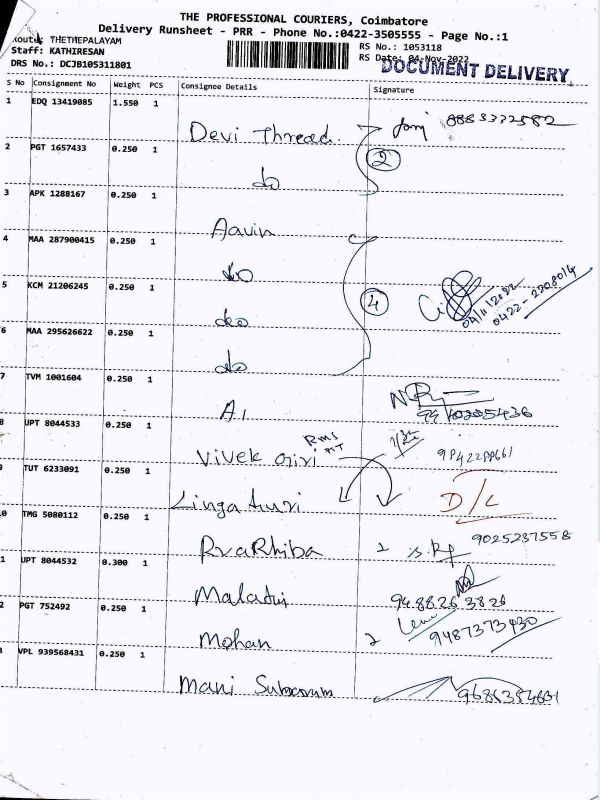 THE PROFESSIONAL COURIERS, Coimbatore
Delivery Runsheet - PRR - Phone No.:0422-3505555 - Page No.:1
Route: THETHEPALAYAM
Staff: KATHIRESAN
DRS No.: DCJB105311801
RS No.: 1053118
RS Date: 04-Nov-2022
DOCUMENT DELIVERY
S No Consignment No Weight PCS Consignee Details Signature
1 EDQ 13419085 1.550 1
Devi Thread 8883332582
2 PGT 1657433 0.250 1
do 2
3 APK 1288167 0.250 1
Aavin
4 MAA 287900415 0.250 1
do
5 KCM 21206245 0.250 1
do 4 04/11/2022
0422-2208014
6 MAA 295626622 0.250 1
do
7 TVM 1001604 0.250 1
A1
8 UPT 8044533 0.250 1
Vivek Giri
9 TUT 6233091 0.250 1
D/L
0 TMG 5080112 0.250 1
9025237558
1 UPT 8044532 0.300 1
94 8826 3826
2 PGT 752492 0.250 1
Mohan 9487373930
3 VPL 939568431 0.250 1
Mani